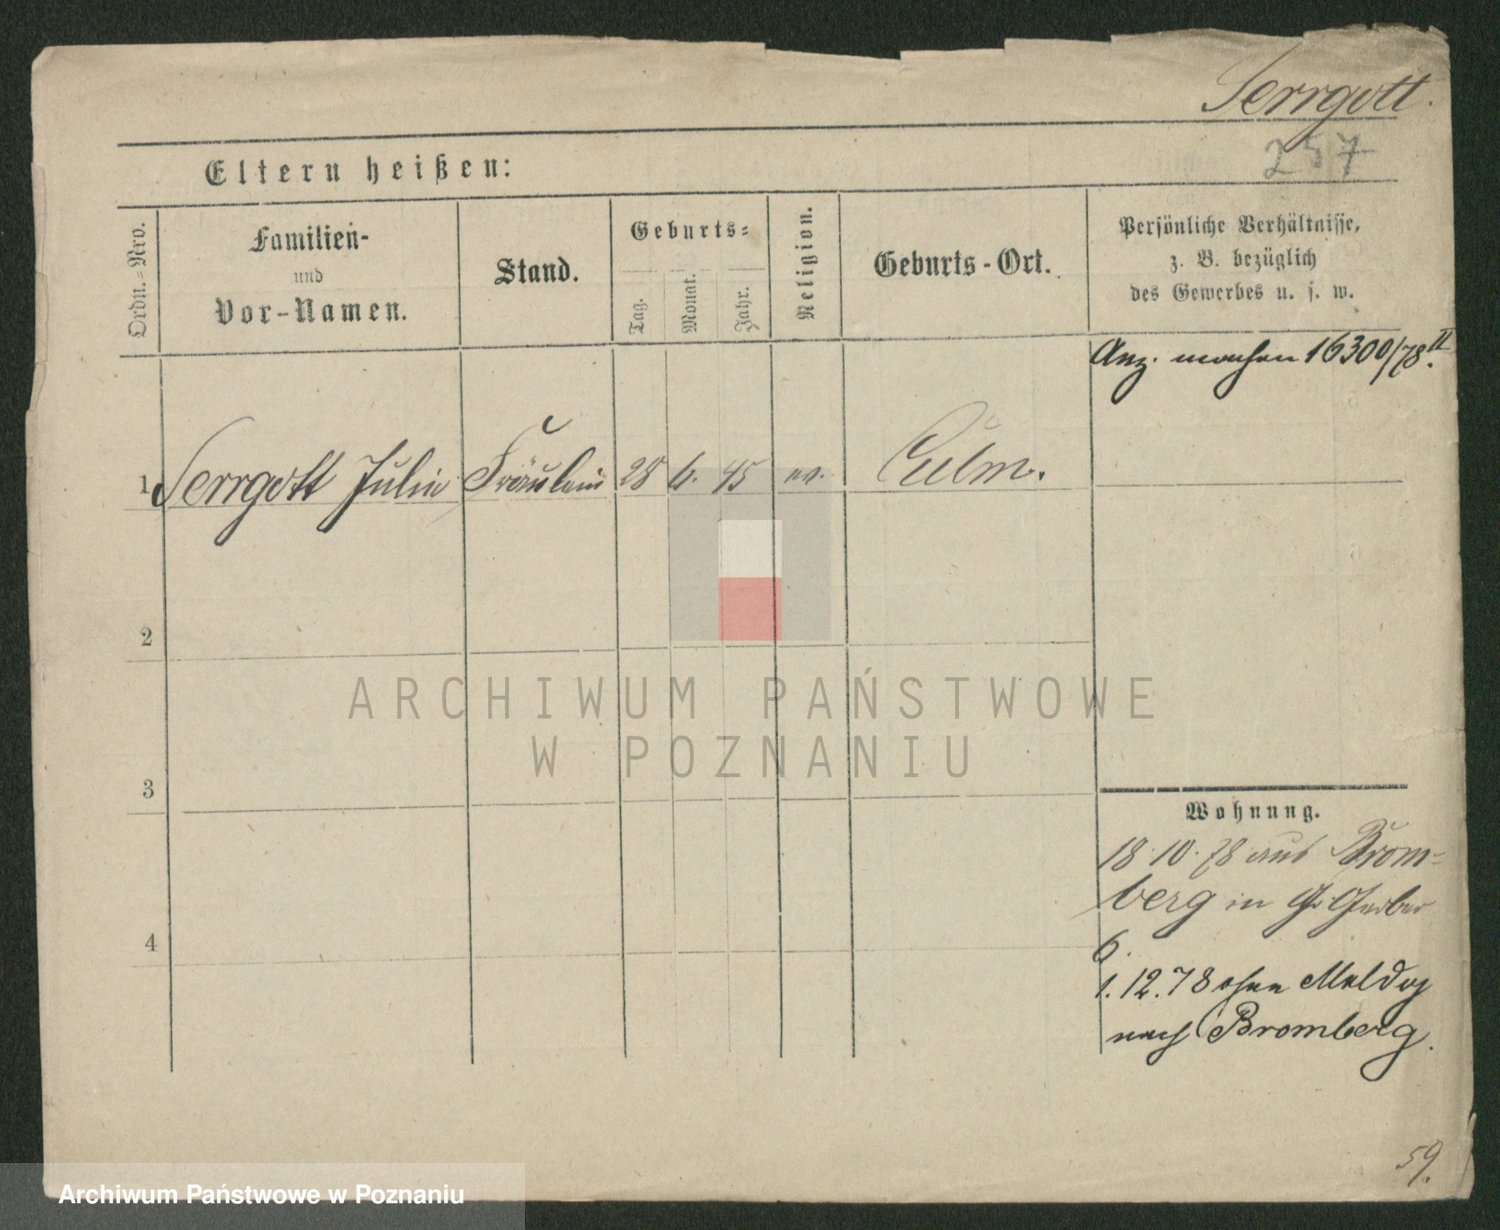 Serrgott.
257
Eltern heißen:
Ordn.-Nro.
Familien-
und
Vor-Namen.
Stand.
Geburts-
Tag.
Monat.
Jahr.
Religion.
Geburts-Ort.
Persönliche Verhältnisse,
z. B. bezüglich
des Gewerbes u. s. w.
Anz. machen 16300/78 II.
1 Serrgott Julie Fräulein 28 6. 45 ev. Culm.
2
3
4
Wohnung.
18.10.78 aus Brom-
berg in Gr. Gerber
6.
1.12.78 ohne Meldg
nach Bromberg.
59.
ARCHIWUM PAŃSTWOWE
W POZNANIU
Archiwum Państwowe w Poznaniu